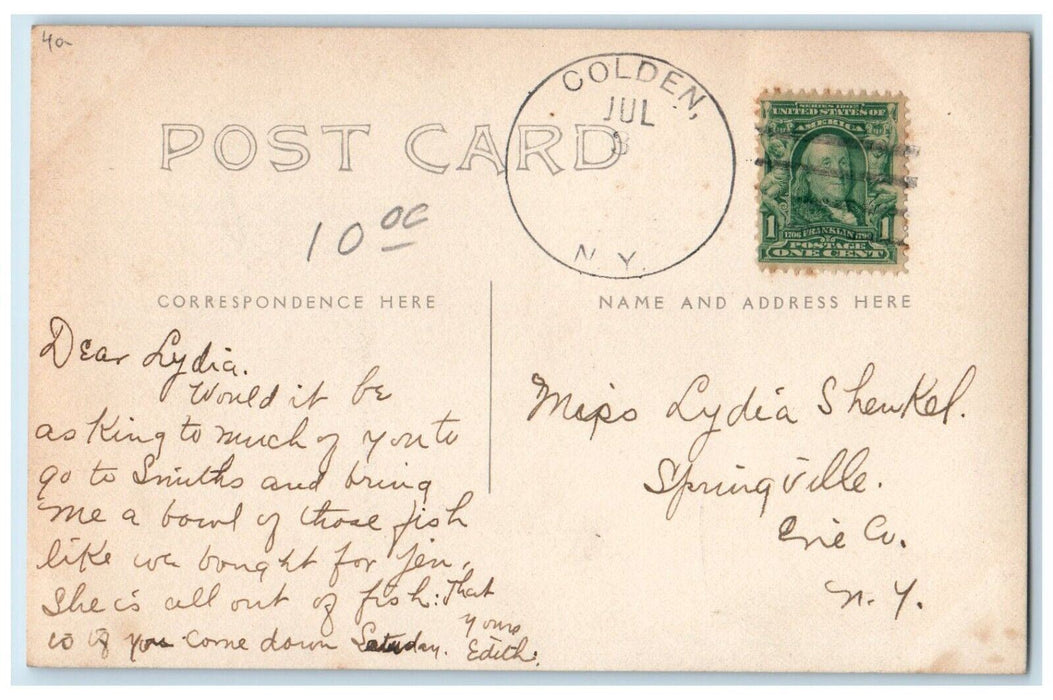 40-
POST CARD
COLDEN,
JUL
8
N.Y.
SERIES 1902
UNITED STATES OF
AMERICA
1 1706 FRANKLIN 1790 1
POSTAGE
ONE CENT
10 00
CORRESPONDENCE HERE
NAME AND ADDRESS HERE
Dear Lydia.
Would it be
asking to much of you to
go to Smiths and bring
me a bowl of those fish
like we bought for Jen,
She is all out of fish: That
is if you come down Saturday.
Yours
Edith.
Miss Lydia Shenkel.
Springville.
Erie Co.
N. Y.